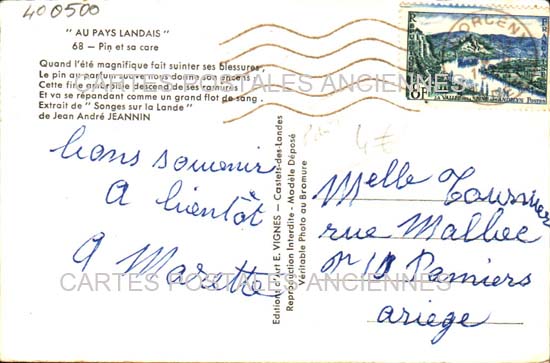 400500
" AU PAYS LANDAIS "
68 — Pin et sa care
Quand l'été magnifique fait suinter ses blessures,
Le pin au parfum
Cette fine
descend de ses ramures
Et va se répandant comme un grand flot de sang.
Extrait de " Songes sur la Lande "
de Jean André JEANNIN
CARTES POSTALES ANCIENNES
bons souvenir
A bientôt
Marette
CARTES POSTALES ANCIENNES
Editions d'Art E. VIGNES — Castets-des-Landes
Reproduction Interdite - Modèle Déposé
Véritable Photo au Bromure
8F
LA VALLÉE DE LA SEINE AUX ANDELYS
POSTES
4€
Melle
rue Malbec
Pamiers
ariege